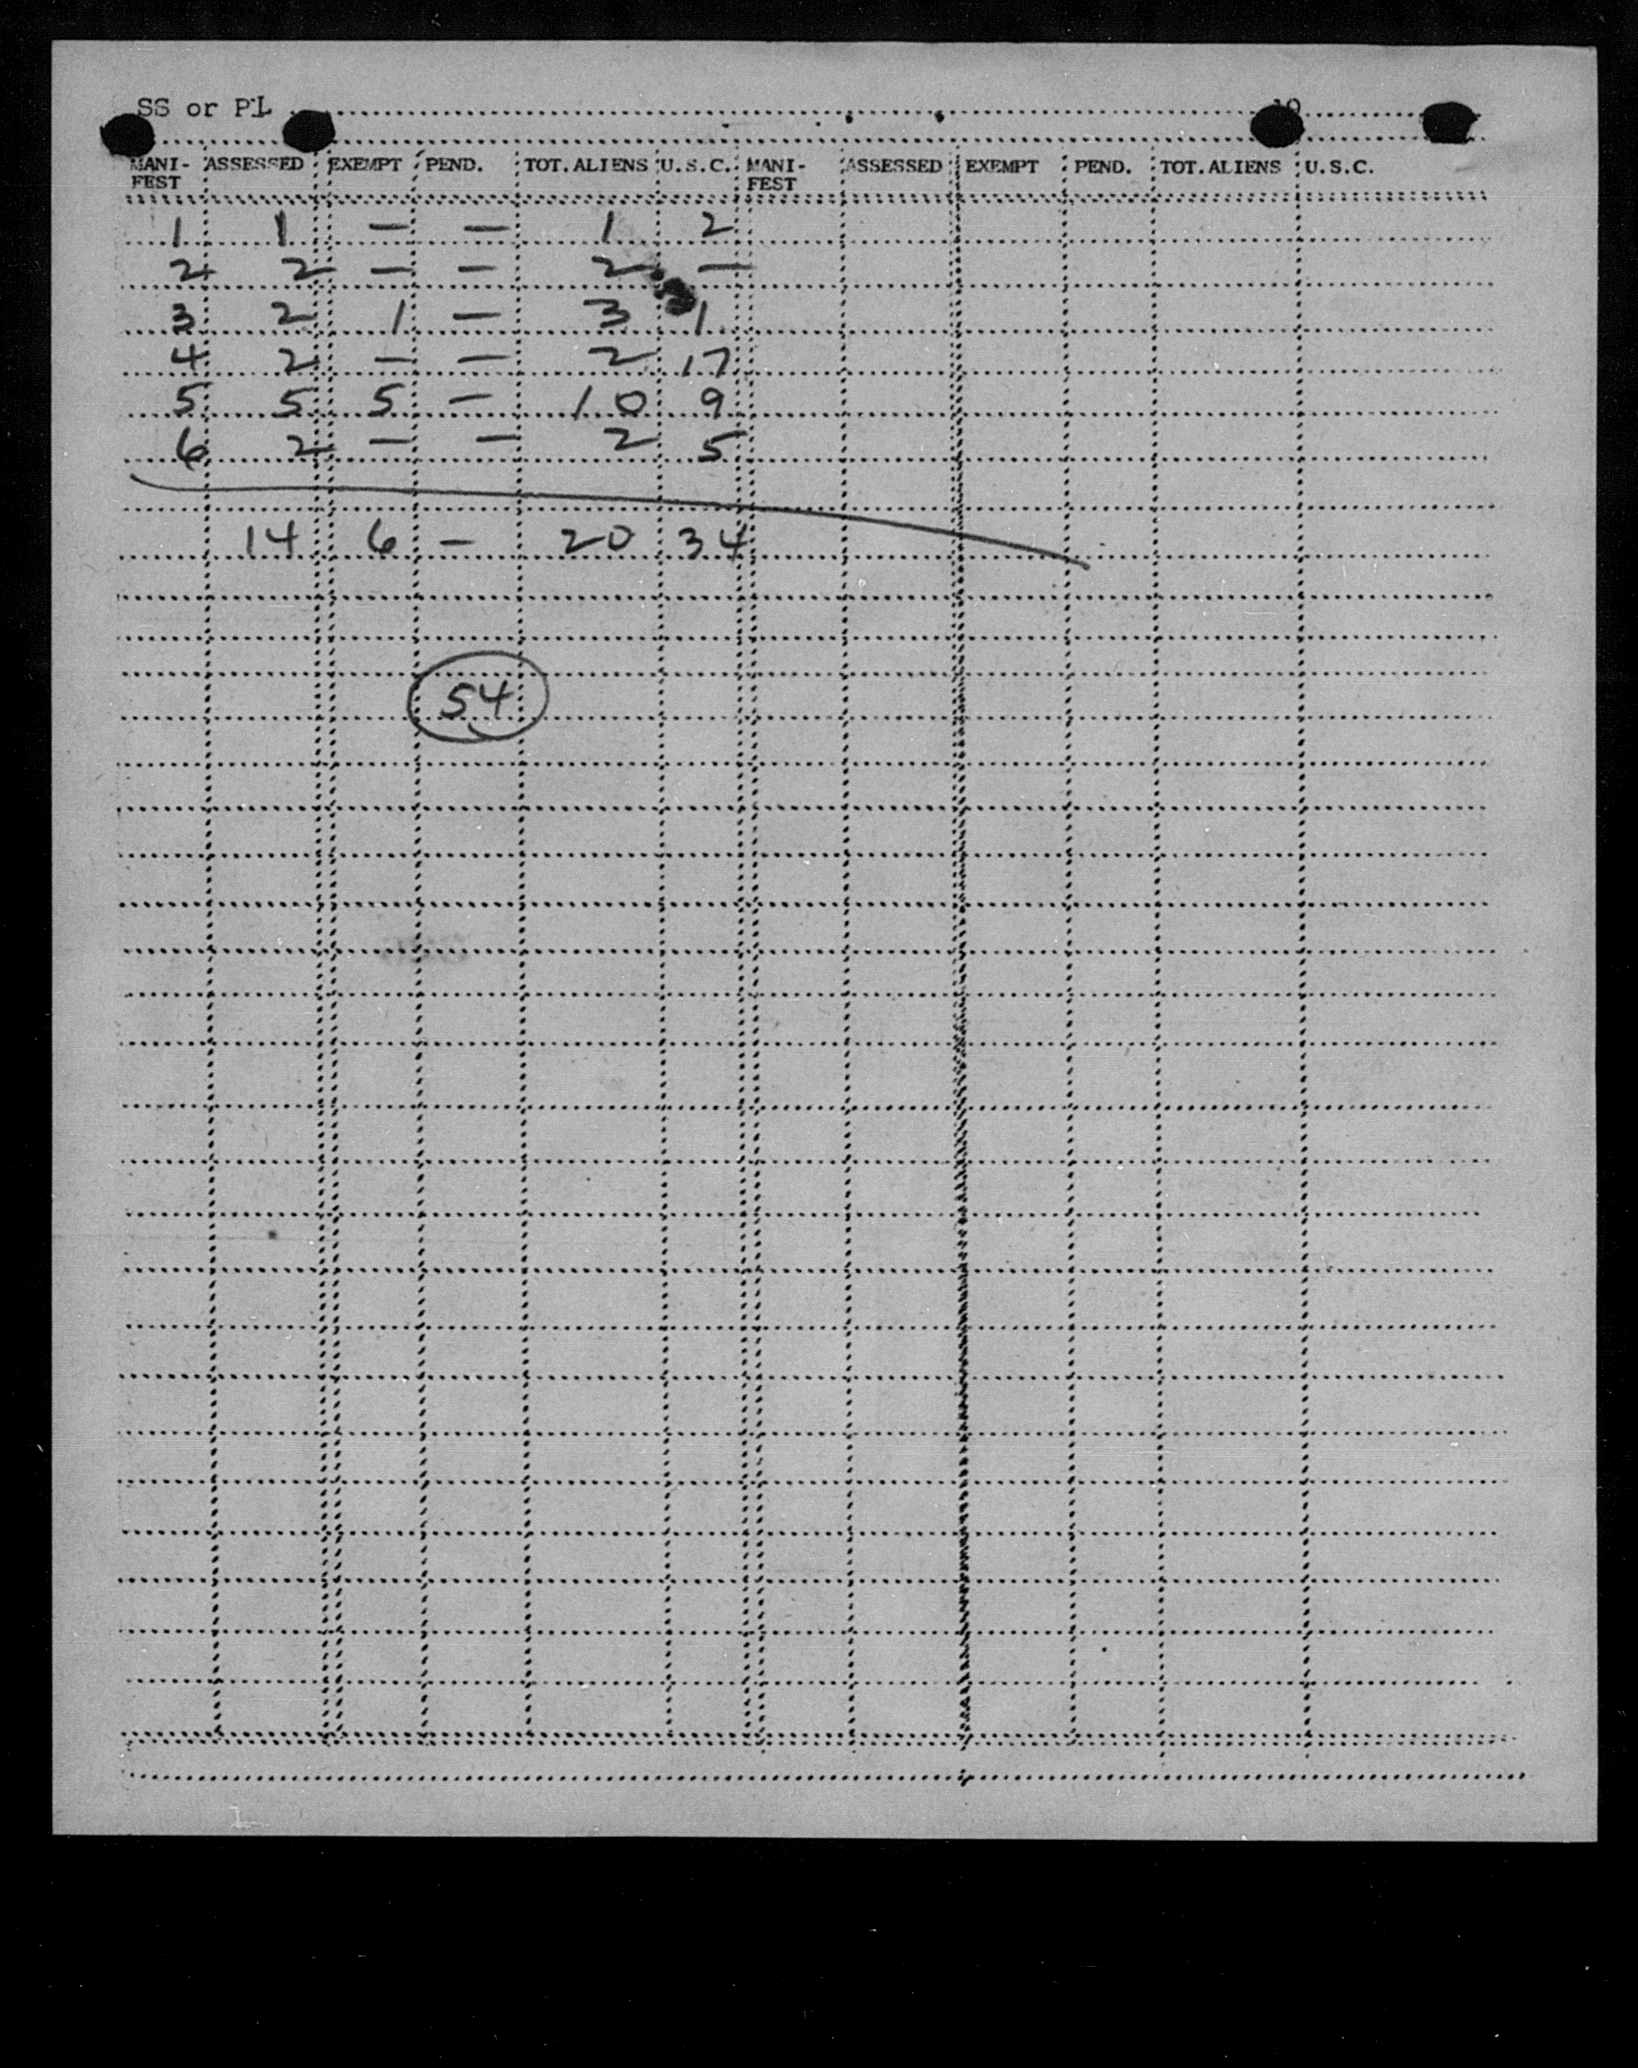 SS or PL 19
MANI-FEST ASSESSED EXEMPT PEND. TOT. ALIENS U.S.C. MANI-FEST ASSESSED EXEMPT PEND. TOT. ALIENS U.S.C.
1 1 — — 1 2
2 2 — — 2 —
3 2 1 — 3 1
4 2 — — 2 17
5 5 5 — 10 9
6 2 — — 2 5
14 6 — 20 34
54